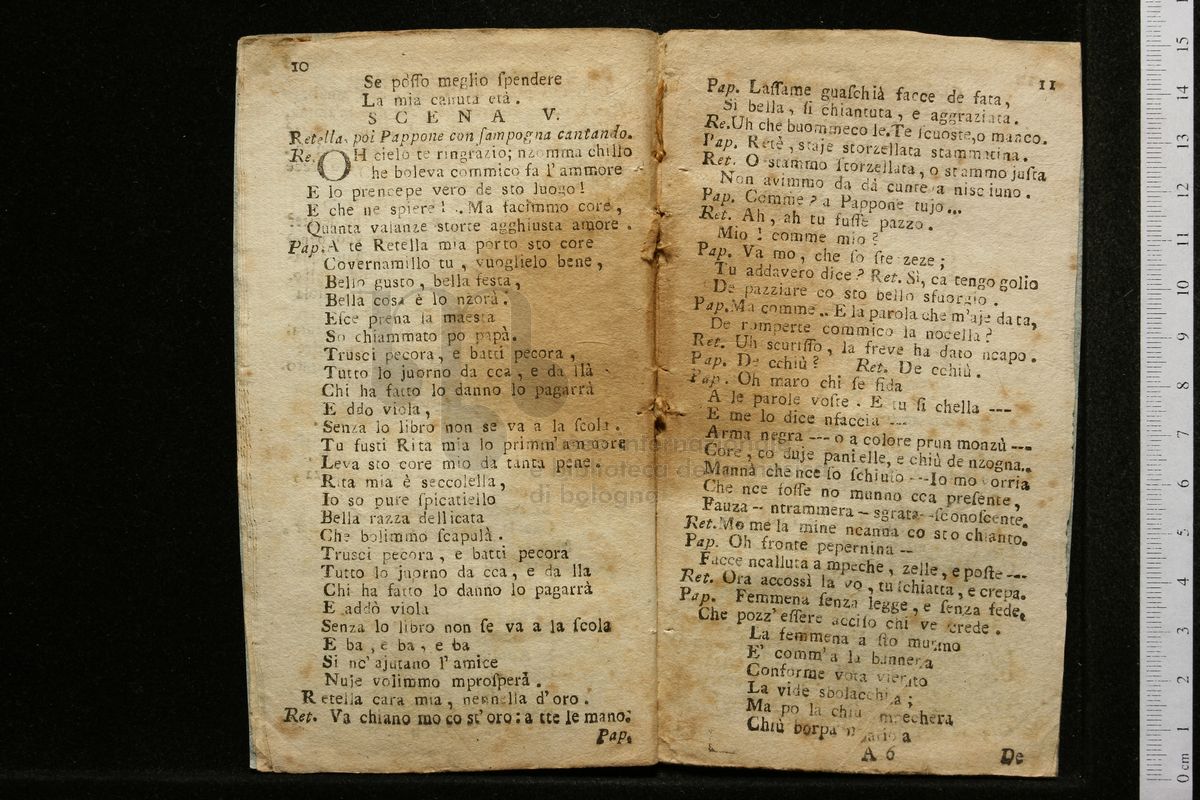 10
Se poſſo meglio ſpendere
La mia canuta età.
SCENA V.
Retella, poi Pappone con ſampogna cantando.
Re. OH cielo te ringrazio; nzomma chillo
che boleva commico fa l'ammore
E lo prencepe vero de sto luogo!
E che ne spiere! .. Ma facimmo core,
Quanta valanze storte agghiusta amore.
Pap. A te Retella mia porto sto core
Covernamillo tu, vuoglielo bene,
Bello gusto, bella festa,
Bella cosa è lo nzorà.
Eſce prena la maesta
So chiammato po papà.
Trusci pecora, e batti pecora,
Tutto lo juorno da cca, e da llà
Chi ha fatto lo danno lo pagarrà
E ddo viola,
Senza lo libro non se va a la ſcola.
Tu fusti Rita mia lo primm'ammore
Leva sto core mio da tanta pene.
Rita mia è seccolella,
Io so pure spicatiello
Bella razza dellicata
Che bolimmo scapulà.
Trusci pecora, e batti pecora
Tutto lo juorno da cca, e da lla
Chi ha fatto lo danno lo pagarrà
E addò viola
Senza lo libro non ſe va a la ſcola
E ba, e ba, e ba
Si nc'ajutano l'amice
Nuje volimmo mproſperà.
Retella cara mia, nennella d'oro.
Ret. Va chiano mo co st'oro: a tte le mano.
Pap.
11
Pap. Laſſame guaſchià facce de fata,
Si bella, ſi chiantuta, e aggraziata.
Re. Uh che buommeco le. Te ſcuoste, o manco.
Pap. Retè, staje storzellata stammatina.
Ret. O stammo ſtorzellata, o stammo juſta
Non avimmo da dà cunte a nisciuno.
Pap. Comme? a Pappone tujo...
Ret. Ah, ah tu fuſſe pazzo.
Mio! comme mio?
Pap. Va mo, che ſo ſte zeze;
Tu addavero dice? Ret. Sì, ca tengo golio
De pazziare co sto bello sfuorgio.
Pap. Ma comme.. E la parola che m'aje data,
De romperte commico la nocella?
Ret. Uh scuriſſo, la freve ha dato ncapo.
Pap. De cchiù? Ret. De cchiù.
Pap. Oh maro chi ſe fida
A le parole voſte. E tu ſi chella ---
E me lo dice nfaccia ---
Arma negra --- o a colore prun monzù ---
Core, co duje panielle, e chiù de nzogna..
Mannà che nce ſo ſchiuto --- Io mo vorria
Che nce foſſe no munno cca preſente,
Fauza -- ntrammera -- sgrata --sconoſcente.
Ret. Mo me la mine ncanna co sto chianto.
Pap. Oh fronte pepernina --
Facce ncalluta a mpeche, zelle, e poſte ---
Ret. Ora accossì la vo, tu ſchiatta, e crepa.
Pap. Femmena ſenza legge, e ſenza fede,
Che pozz'eſſere acciſo chi ve crede.
La femmena a ſto munno
E' comm'a la bannera
Conforme vota viento
La vide sbolacchia;
Ma po la chiù mpechera
Chiù borpa
A 6
De